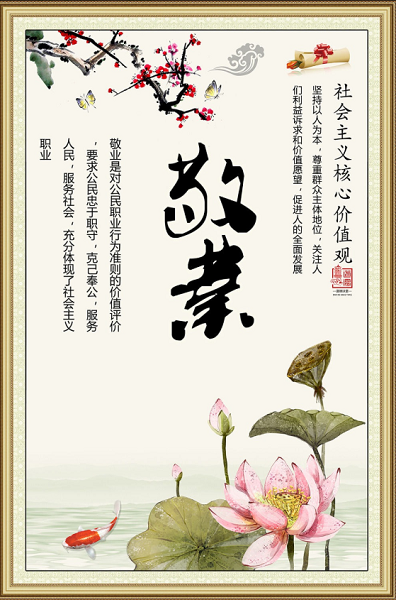 社会主义核心价值观
坚持以人为本，尊重群众主体地位，关注人
们利益诉求和价值愿望，促进人的全面发展
敬業
敬业是对公民职业行为准则的价值评价
，要求公民忠于职守，克己奉公，服务
人民，服务社会，充分体现了社会主义
职业